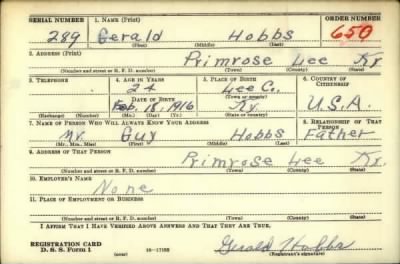 SERIAL NUMBER 1. NAME (Print) ORDER NUMBER
289 Gerald Hobbs 650
(First) (Middle) (Last)
2. ADDRESS (Print)
Primrose Lee Ky
(Number and street or R. F. D. number) (Town) (County) (State)
3. TELEPHONE 4. AGE IN YEARS 5. PLACE OF BIRTH 6. COUNTRY OF CITIZENSHIP
24 Lee Co.
DATE OF BIRTH (Town or county)
Feb. 18, 1916 Ky. U.S.A.
(Exchange) (Number) (Mo.) (Day) (Yr.) (State or country)
7. NAME OF PERSON WHO WILL ALWAYS KNOW YOUR ADDRESS 8. RELATIONSHIP OF THAT PERSON
Mr. Guy Hobbs Father
(Mr., Mrs., Miss) (First) (Middle) (Last)
9. ADDRESS OF THAT PERSON
Primrose Lee Ky.
(Number and street or R. F. D. number) (Town) (County) (State)
10. EMPLOYER'S NAME
None
11. PLACE OF EMPLOYMENT OR BUSINESS
(Number and street or R. F. D. number) (Town) (County) (State)
I AFFIRM THAT I HAVE VERIFIED ABOVE ANSWERS AND THAT THEY ARE TRUE.
REGISTRATION CARD
D. S. S. FORM 1 (over) Gerald Hobbs
(Registrant's signature)